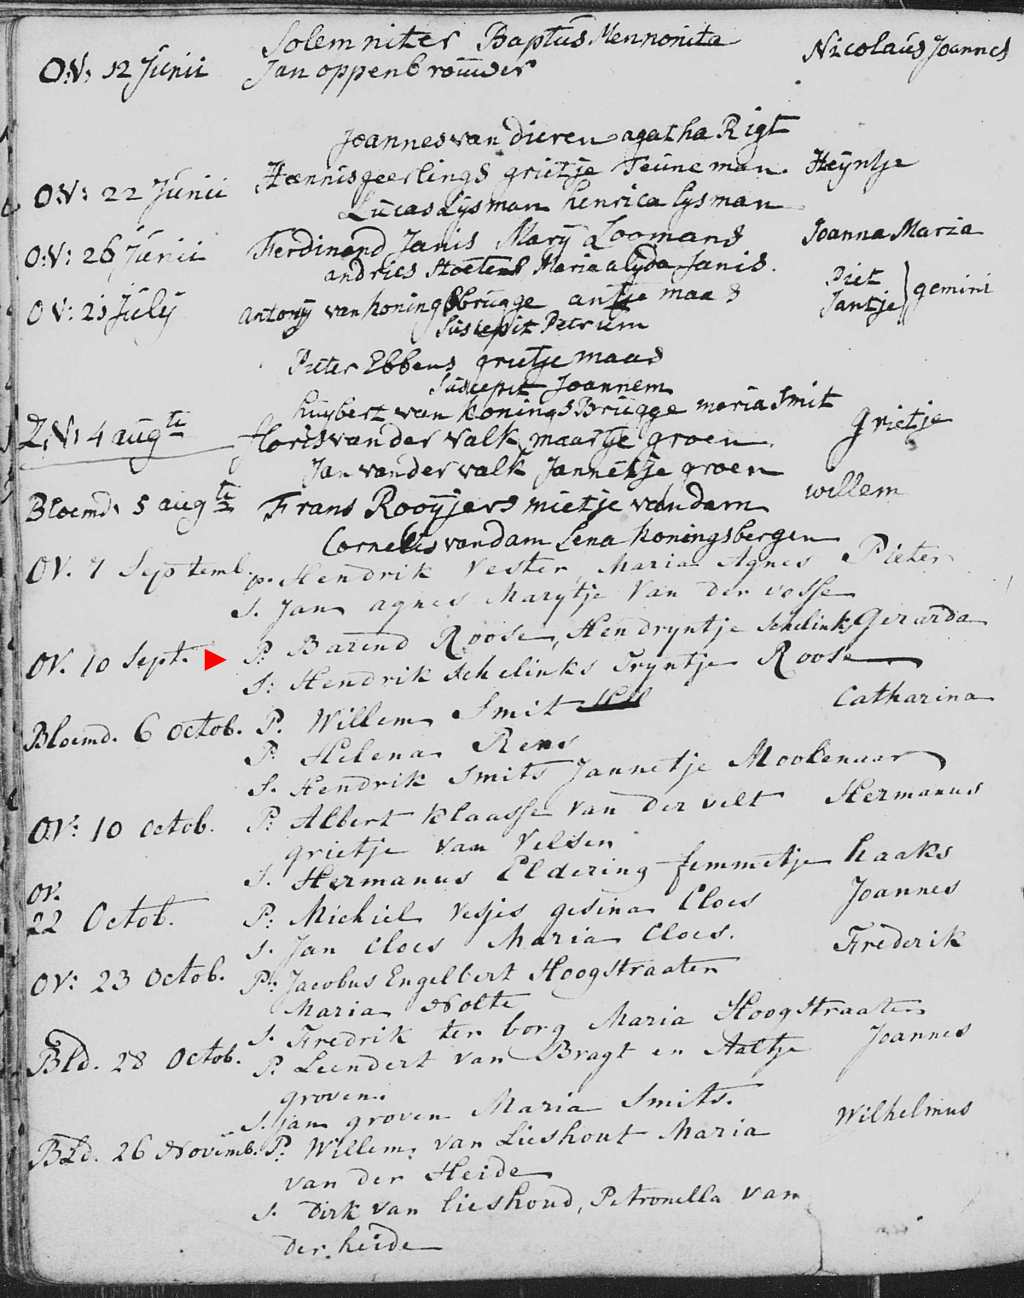 Solemniter Baptus Mennonita
O.V: 12 Junii Jan oppenbrouwer Nicolaus Joannes
Joannes van dieren agatha Rigt
O.V: 22 Junii Hannis geerlings grietje Teuneman Heyntje
Lucas Lysman henrica lysman
O.V: 26 Junii Ferdinand Janis Mary Loomans Joanna Maria
andries Stoetens Maria alyda Janis.
O V: 21 July antony van koningsbrugge antje maas Piet Jantje gemini
suscepit Petrum
Pieter Ebbens grietje maas
suscepit Joannem
huybert van koningsBrugge maria Smit
Z.V: 4 augti floris van der valk maartje groen Grietje
Jan van der valk Jannetje groen
Bloemd: 5 augti Frans Rooyjers mietje van dam willem
Cornelis van dam Lena koningsbergen
OV. 7 Septemb. p. Hendrik Vester Maria Agnes Pieter
S. Jan agnes Marytje Van der vosse
OV. 10 Sept. P: Barend Roose, Hendryntje schelinks Gerarda
S: Hendrik schelinks Tryntje Roose
Bloemd. 6 octob. P. Willem Smit Catharina
P. Helena Rens
S. Hendrik Smits Jannetje Moolenaar
O.V: 10 octob. P: Albert klaasse van der velt Hermanus
grietje van Velsen
S. Hermanus Eldering femmetje haaks
OV.
22 Octob. P: Michiel Vesjes gesina Cloes Joannes
S. Jan Cloes Maria Cloes.
OV: 23 Octob. P: Jacobus Engelbert Hoogstraaten Frederik
Maria Nolte
S. Fredrik ter borg Maria Hoogstraaten
Bld. 28 Octob. P. Leendert van Bragt en Aaltje Joannes
groven.
S. jan groven Maria Smits.
Bld. 26 Novemb. P. Willem van Lieshout Maria Wilhelmus
van der Heide
S. Dirk van lieshoud, Petronella van
der heide